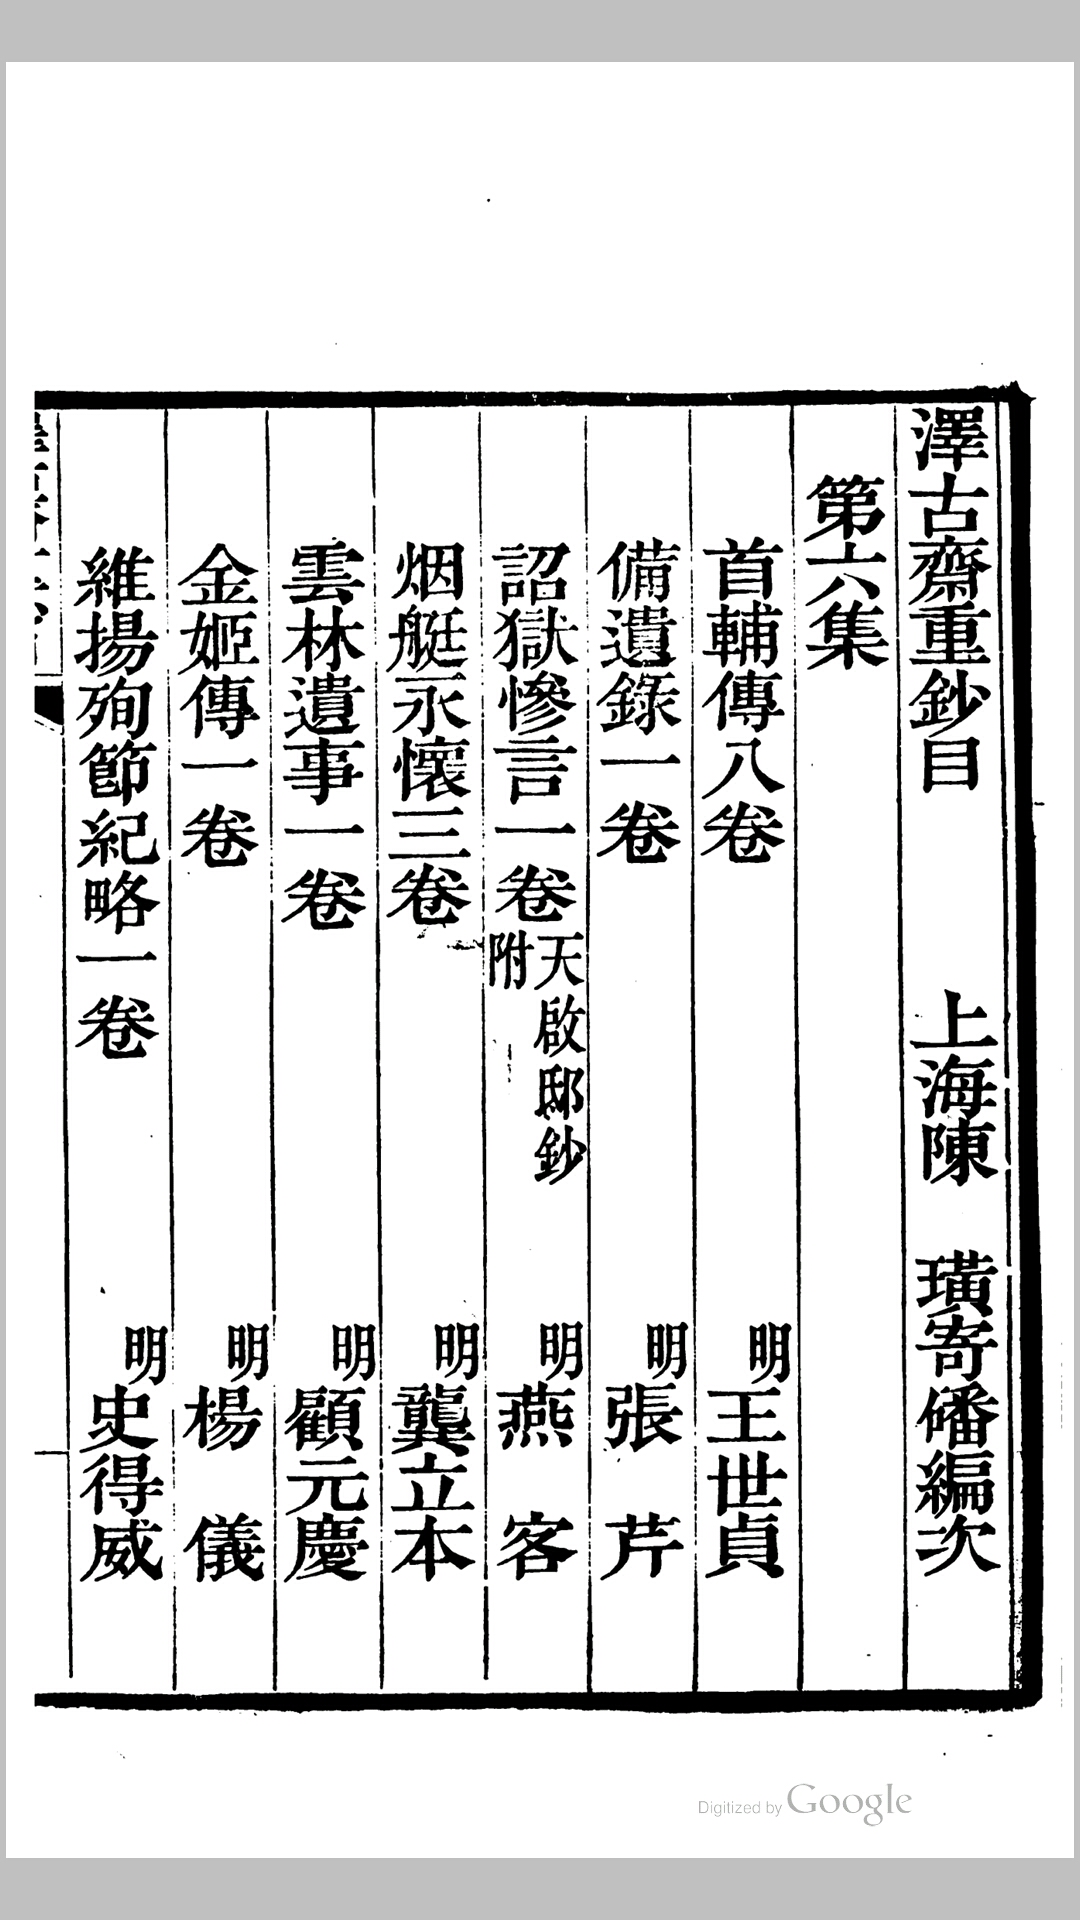 澤古齋重鈔目　上海陳　璜寄磻編次
第六集
首輔傳八卷　明王世貞
備遺錄一卷　明張　芹
詔獄慘言一卷天啟邸鈔附　明燕　客
烟艇永懷三卷　明龔立本
雲林遺事一卷　明顧元慶
金姬傳一卷　明楊　儀
維揚殉節紀略一卷　明史得威
Digitized by Google